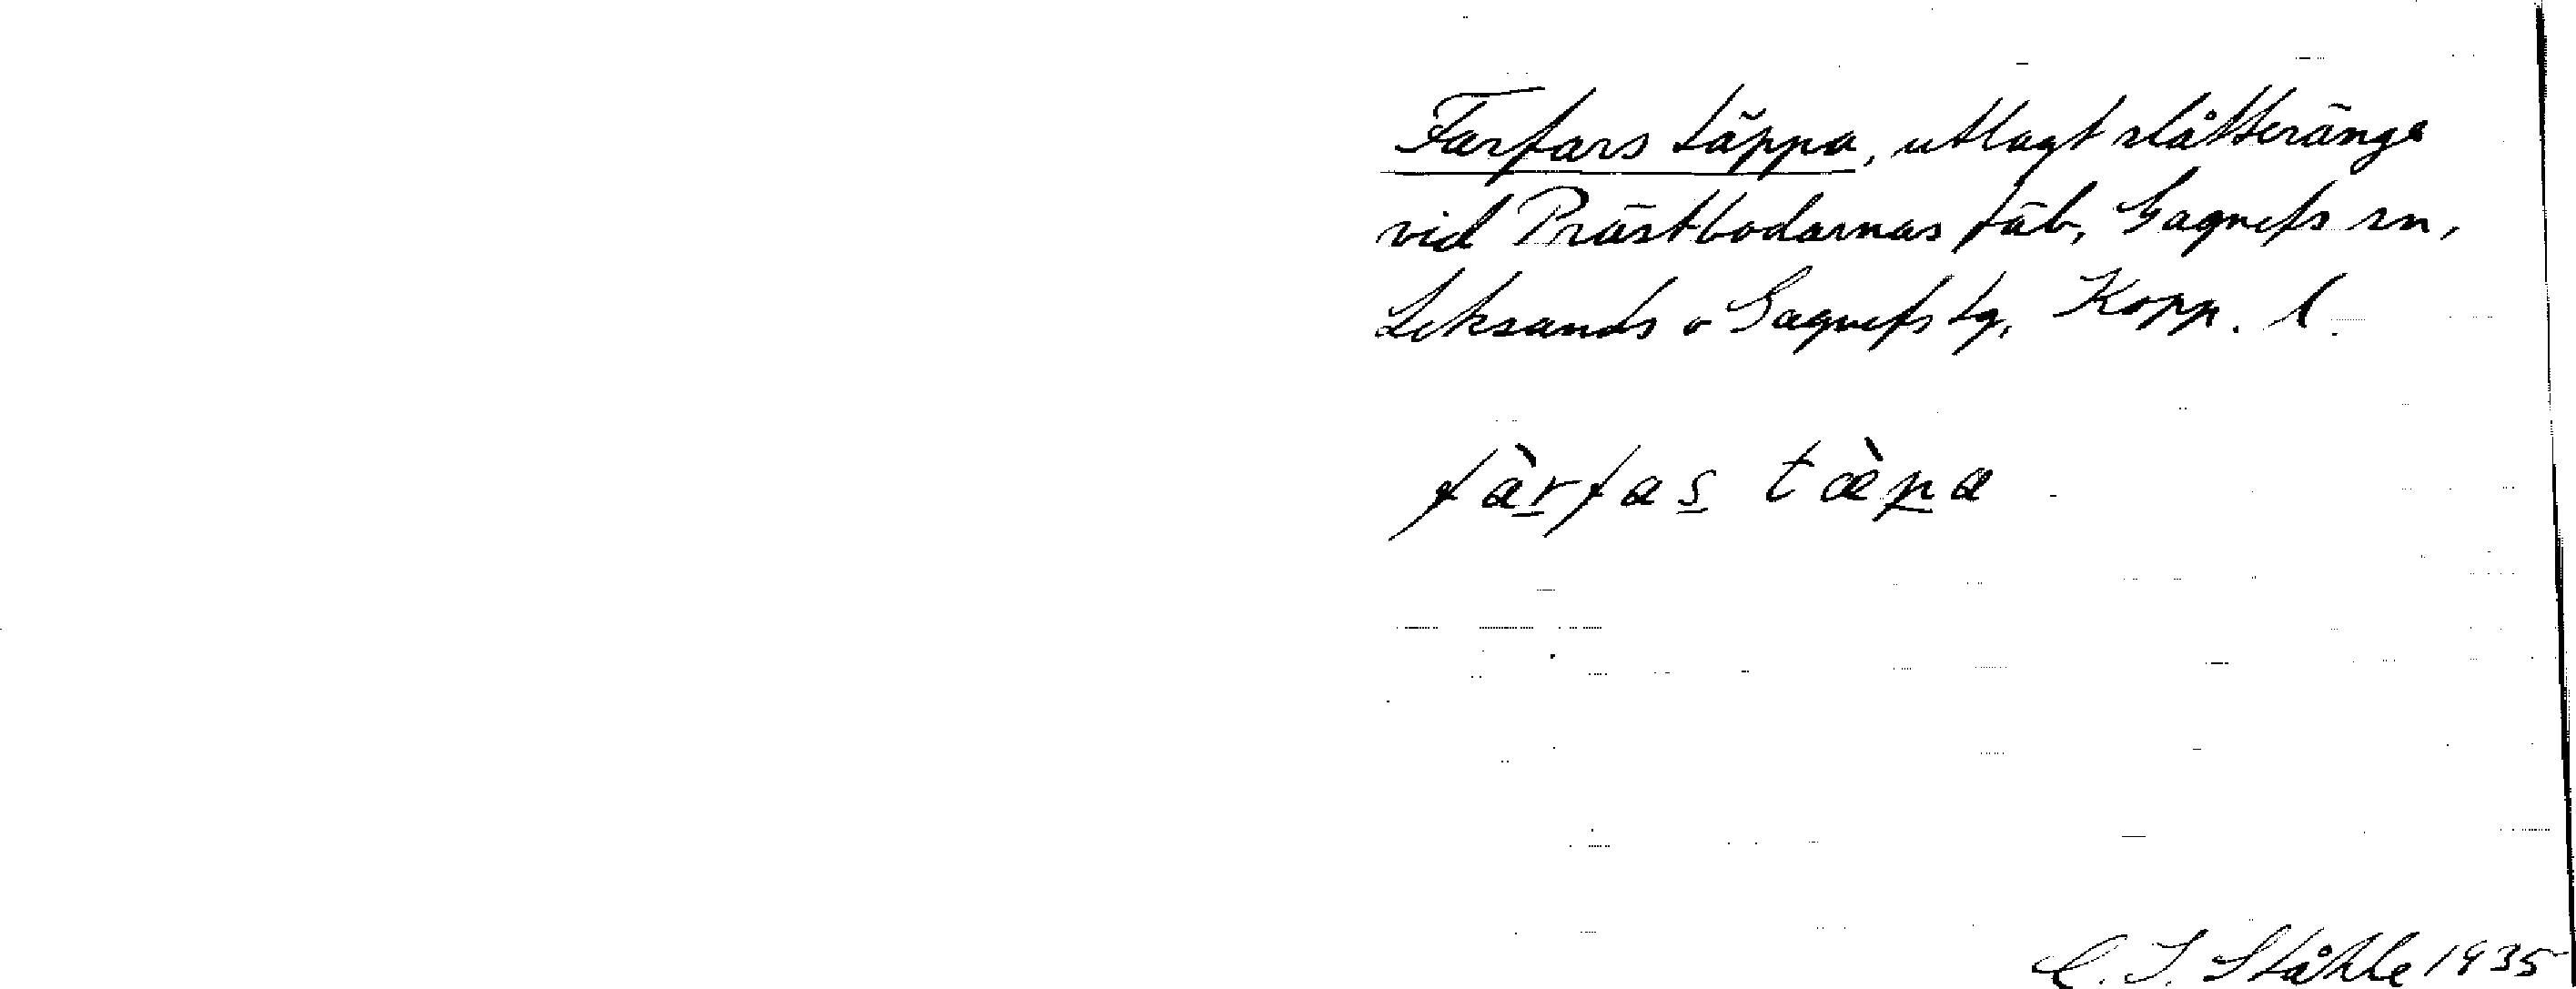 Farfars täppa, utlagt slåtteränge
vid Prästbodarnas fäb, Gagnefs sn,
Leksands o Gagnefs tg, Kopp. l.
fàrfas tæ̀pa
C. I. Ståhle 1935